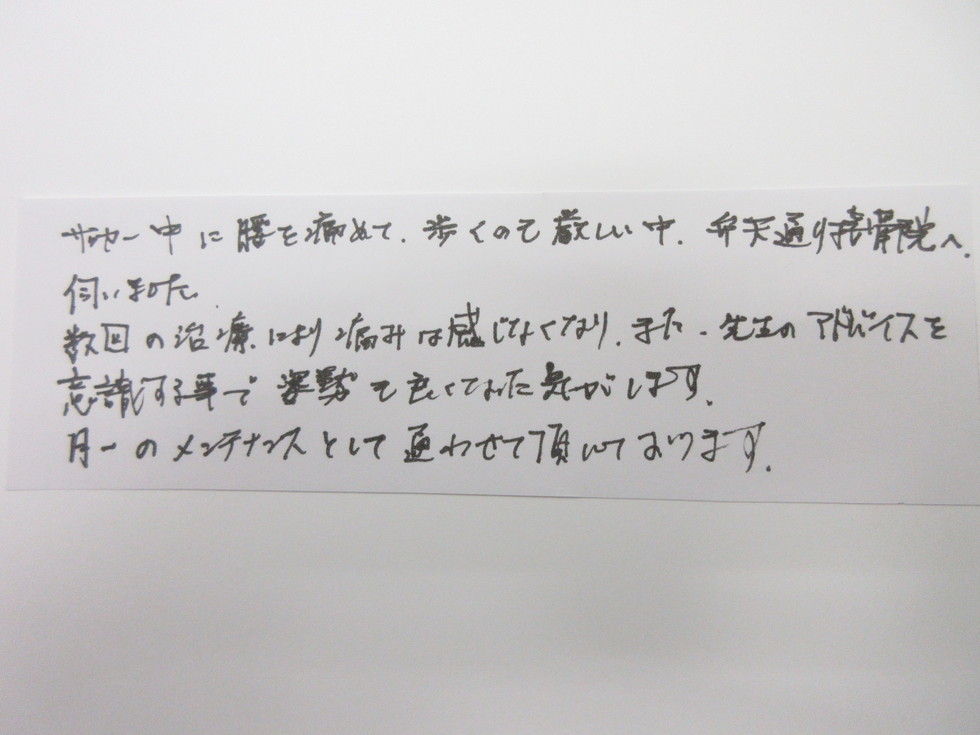 サッカー中に腰を痛めて、歩くのも厳しい中、弁天通り接骨院へ、
伺いました。
数回の治療により痛みは感じなくなり、また、先生のアドバイスを
意識する事で姿勢も良くなった気がします。
月一のメンテナンスとして通わせて頂いております。